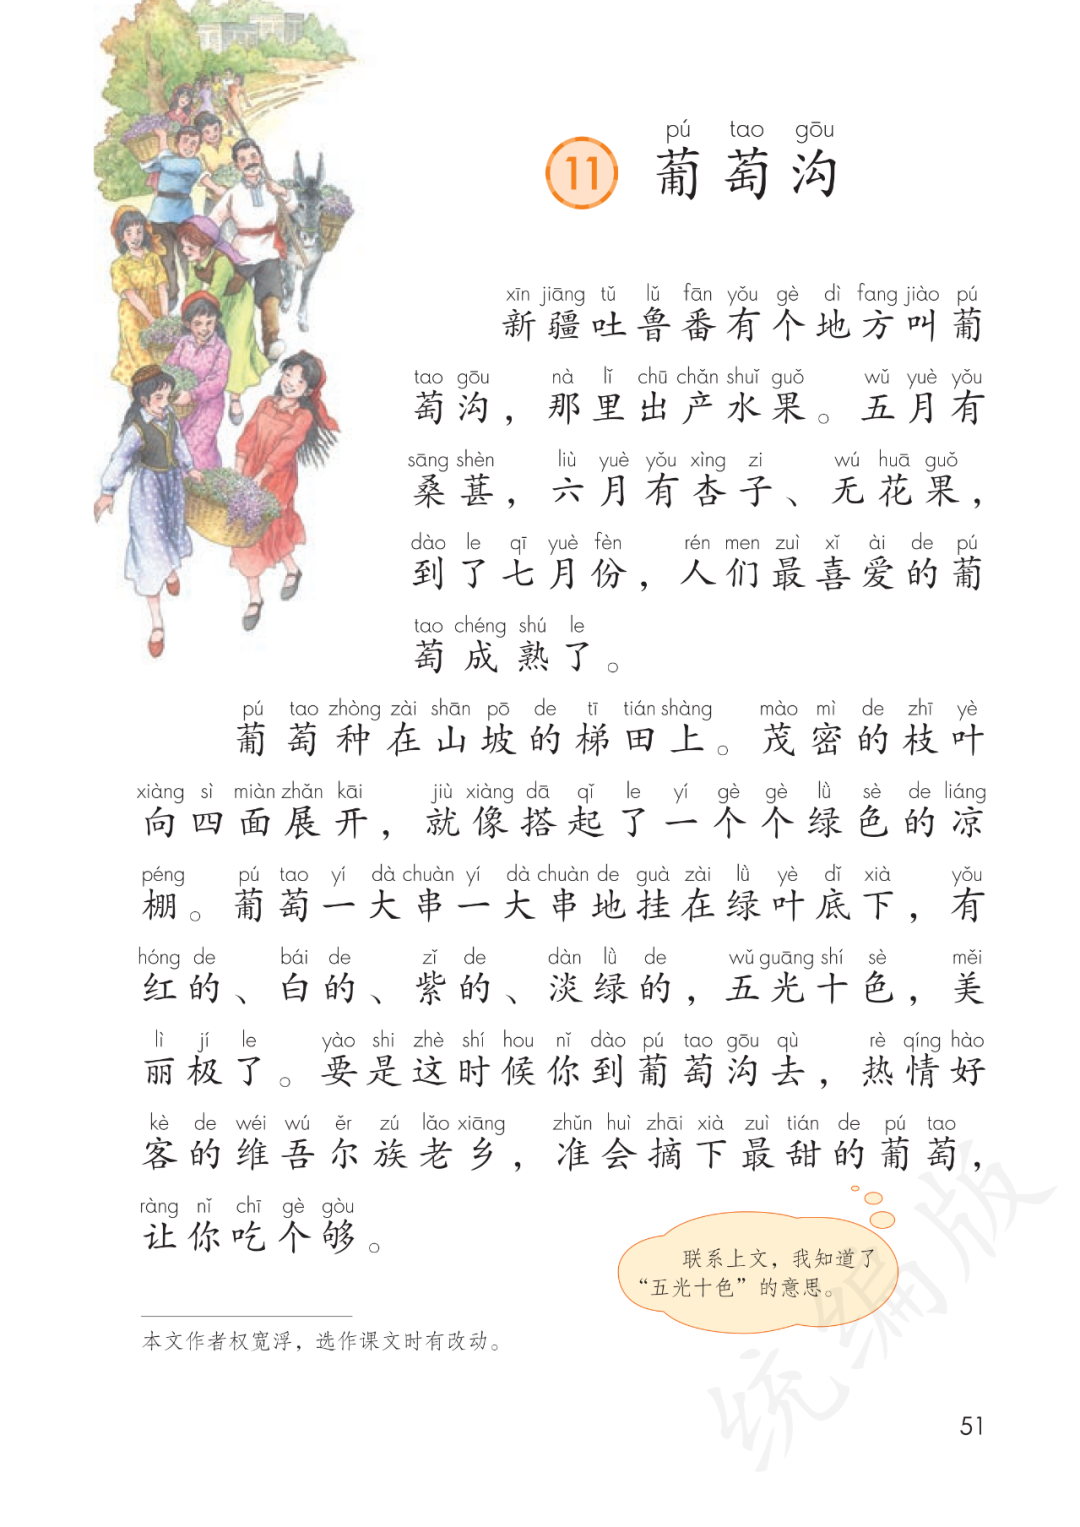 pú tao gōu
11 葡萄沟
xīn jiāng tǔ lǔ fān yǒu gè dì fang jiào pú
新疆吐鲁番有个地方叫葡
tao gōu nà lǐ chū chǎn shuǐ guǒ wǔ yuè yǒu
萄沟，那里出产水果。五月有
sāng shèn liù yuè yǒu xìng zi wú huā guǒ
桑葚，六月有杏子、无花果，
dào le qī yuè fèn rén men zuì xǐ ài de pú
到了七月份，人们最喜爱的葡
tao chéng shú le
萄成熟了。
pú tao zhòng zài shān pō de tī tián shàng mào mì de zhī yè
葡萄种在山坡的梯田上。茂密的枝叶
xiàng sì miàn zhǎn kāi jiù xiàng dā qǐ le yí gè gè lǜ sè de liáng
向四面展开，就像搭起了一个个绿色的凉
péng pú tao yí dà chuàn yí dà chuàn de guà zài lǜ yè dǐ xià yǒu
棚。葡萄一大串一大串地挂在绿叶底下，有
hóng de bái de zǐ de dàn lǜ de wǔ guāng shí sè měi
红的、白的、紫的、淡绿的，五光十色，美
lì jí le yào shi zhè shí hou nǐ dào pú tao gōu qù rè qíng hào
丽极了。要是这时候你到葡萄沟去，热情好
kè de wéi wú ěr zú lǎo xiāng zhǔn huì zhāi xià zuì tián de pú tao
客的维吾尔族老乡，准会摘下最甜的葡萄，
ràng nǐ chī gè gòu
让你吃个够。
联系上文，我知道了
“五光十色”的意思。
本文作者权宽浮，选作课文时有改动。
统编版
51